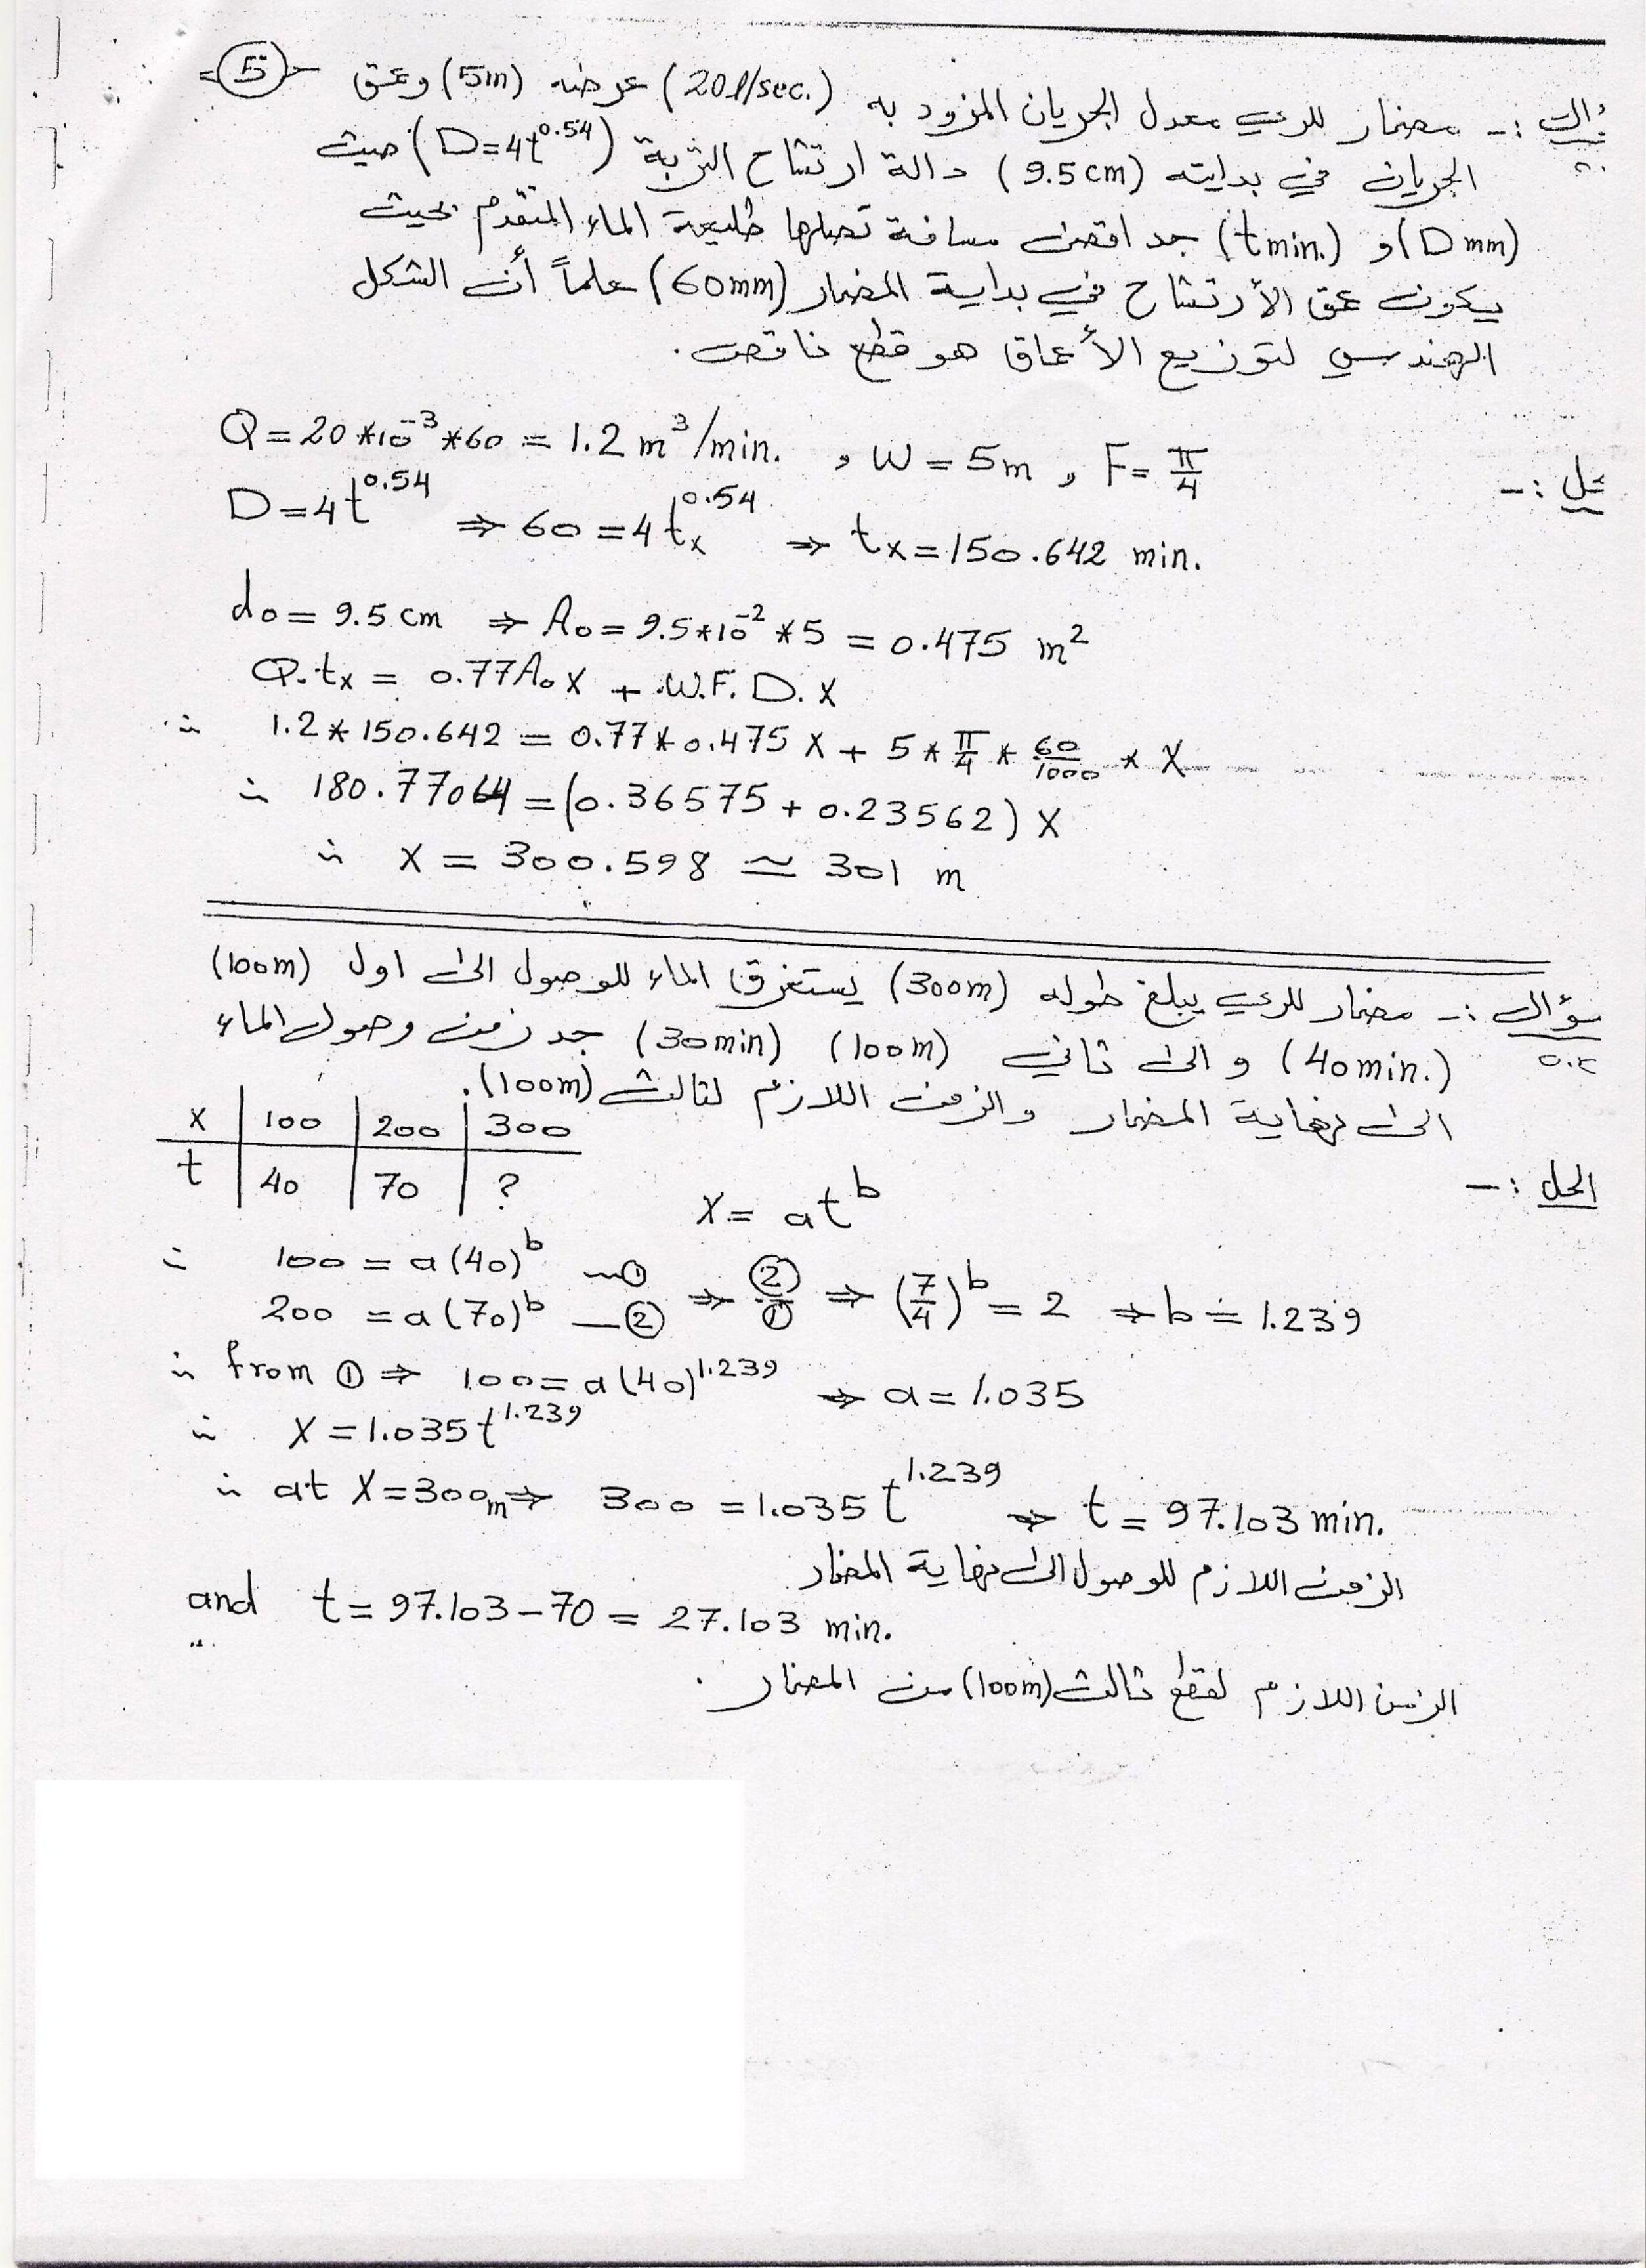 5
ؤال :- مضمار للري معدل الجريان المزود به (20 l/sec.) عرضه (5m) وعمق
الجريان في بدايته (9.5cm) دالة ارتشاح التربة (D=4t^0.54) حيث
(D mm) و (t min.) جد اقصى مسافة تصلها طليعة الماء المتقدم بحيث
يكون عمق الأرتشاح في بداية المضمار (60mm) علماً أن الشكل
الهندسي لتوزيع الأعماق هو قطع ناقص.
حل :-
Q = 20*10^-3*60 = 1.2 m^3/min. , W = 5m , F = π/4
D = 4t^0.54 ⇒ 60 = 4tx^0.54 ⇒ tx = 150.642 min.
do = 9.5 cm ⇒ Ao = 9.5*10^-2 *5 = 0.475 m^2
Q.tx = 0.77Ao X + W.F. D. X
∴ 1.2*150.642 = 0.77*0.475 X + 5*π/4*60/1000 * X
∴ 180.77064 = (0.36575 + 0.23562) X
∴ X = 300.598 ≃ 301 m
سؤال :- مضمار للري يبلغ طوله (300m) يستغرق الماء للوصول الى اول (100m)
(40min.) و الى ثاني (100m) (30min) جد زمن وصول الماء
الى نهاية المضمار والزمن اللازم لثالث (100m).
X | 100 | 200 | 300
t | 40 | 70 | ?
الحل :-
X = at^b
∴ 100 = a(40)^b —①
200 = a(70)^b —② ⇒ ②/① ⇒ (7/4)^b = 2 ⇒ b = 1.239
∴ from ① ⇒ 100 = a(40)^1.239 ⇒ a = 1.035
∴ X = 1.035t^1.239
∴ at X = 300m ⇒ 300 = 1.035 t^1.239 ⇒ t = 97.103 min.
الزمن اللازم للوصول الى نهاية المضمار
and t = 97.103 – 70 = 27.103 min.
الزمن اللازم لقطع ثالث (100m) من المضمار.